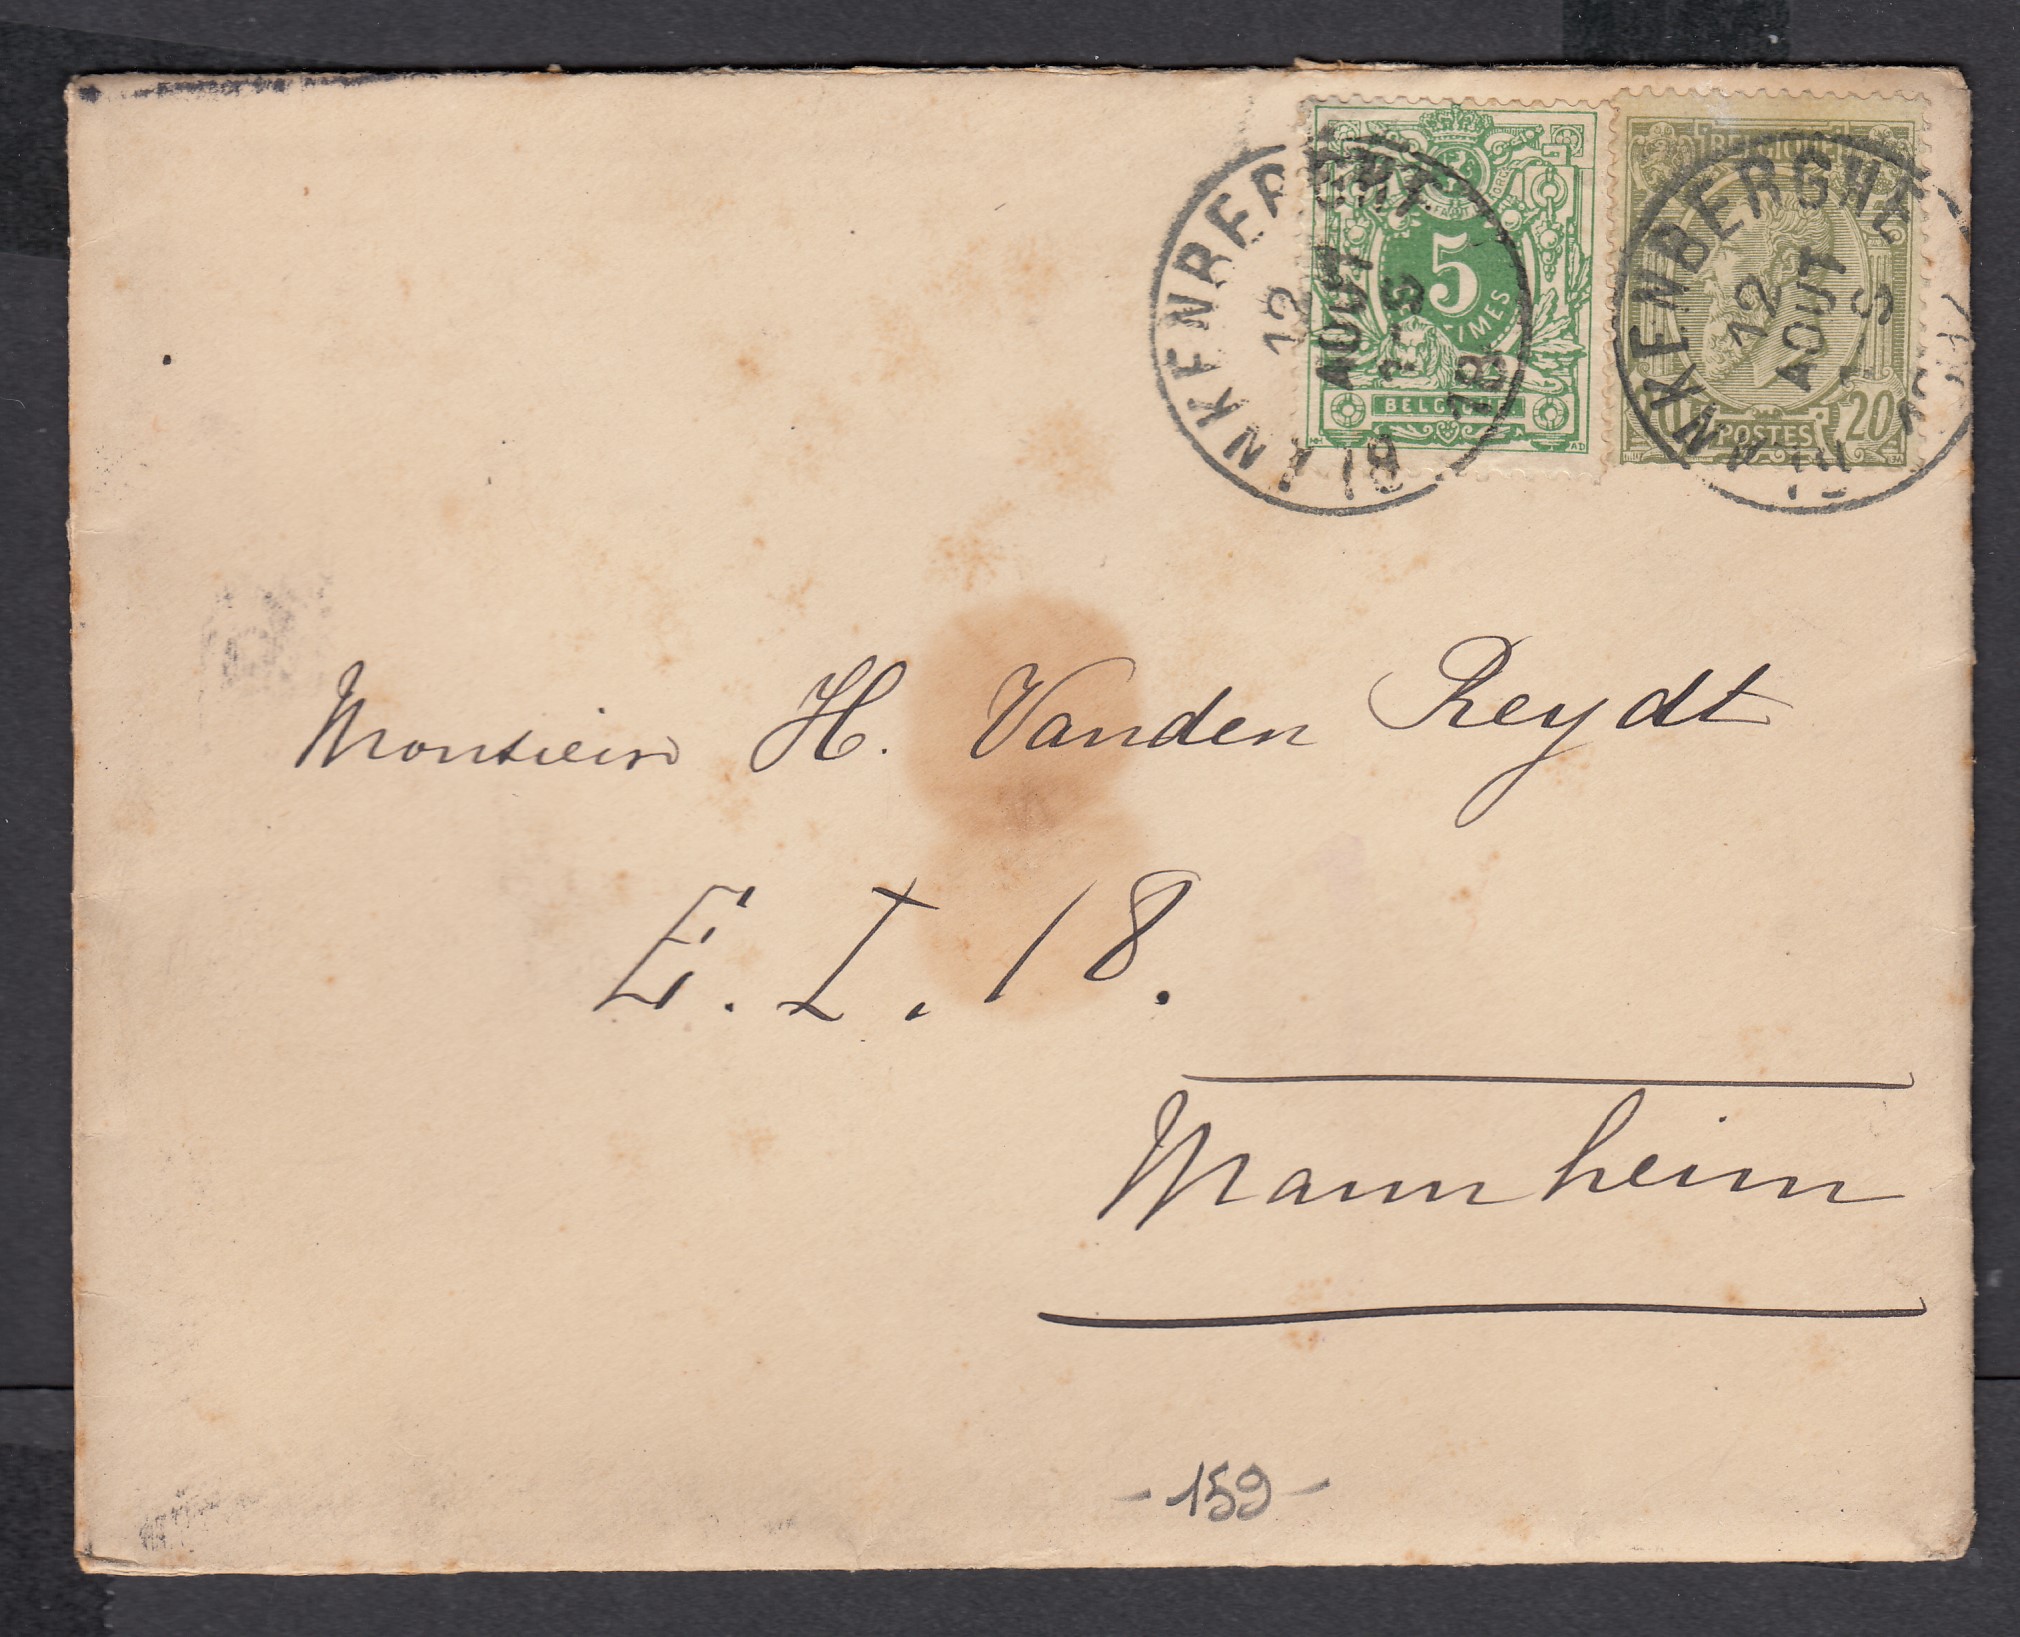 BELGIQUE
5
BELGIQUE
POSTES 20
BLANKENBERGHE
12
AOUT
BLANKENBERGHE
12
AOUT
Monsieur H. Vanden Reydt
E. I. 18.
Mannheim
- 159 -